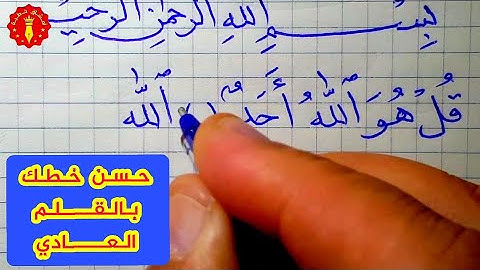 بِسْمِ اللهِ الرَّحْمٰنِ الرَّحِيمِ
قُلْ هُوَ ٱللَّهُ أَحَدٌ ٱللَّهُ
حسن خطك
بالقلم
العادي